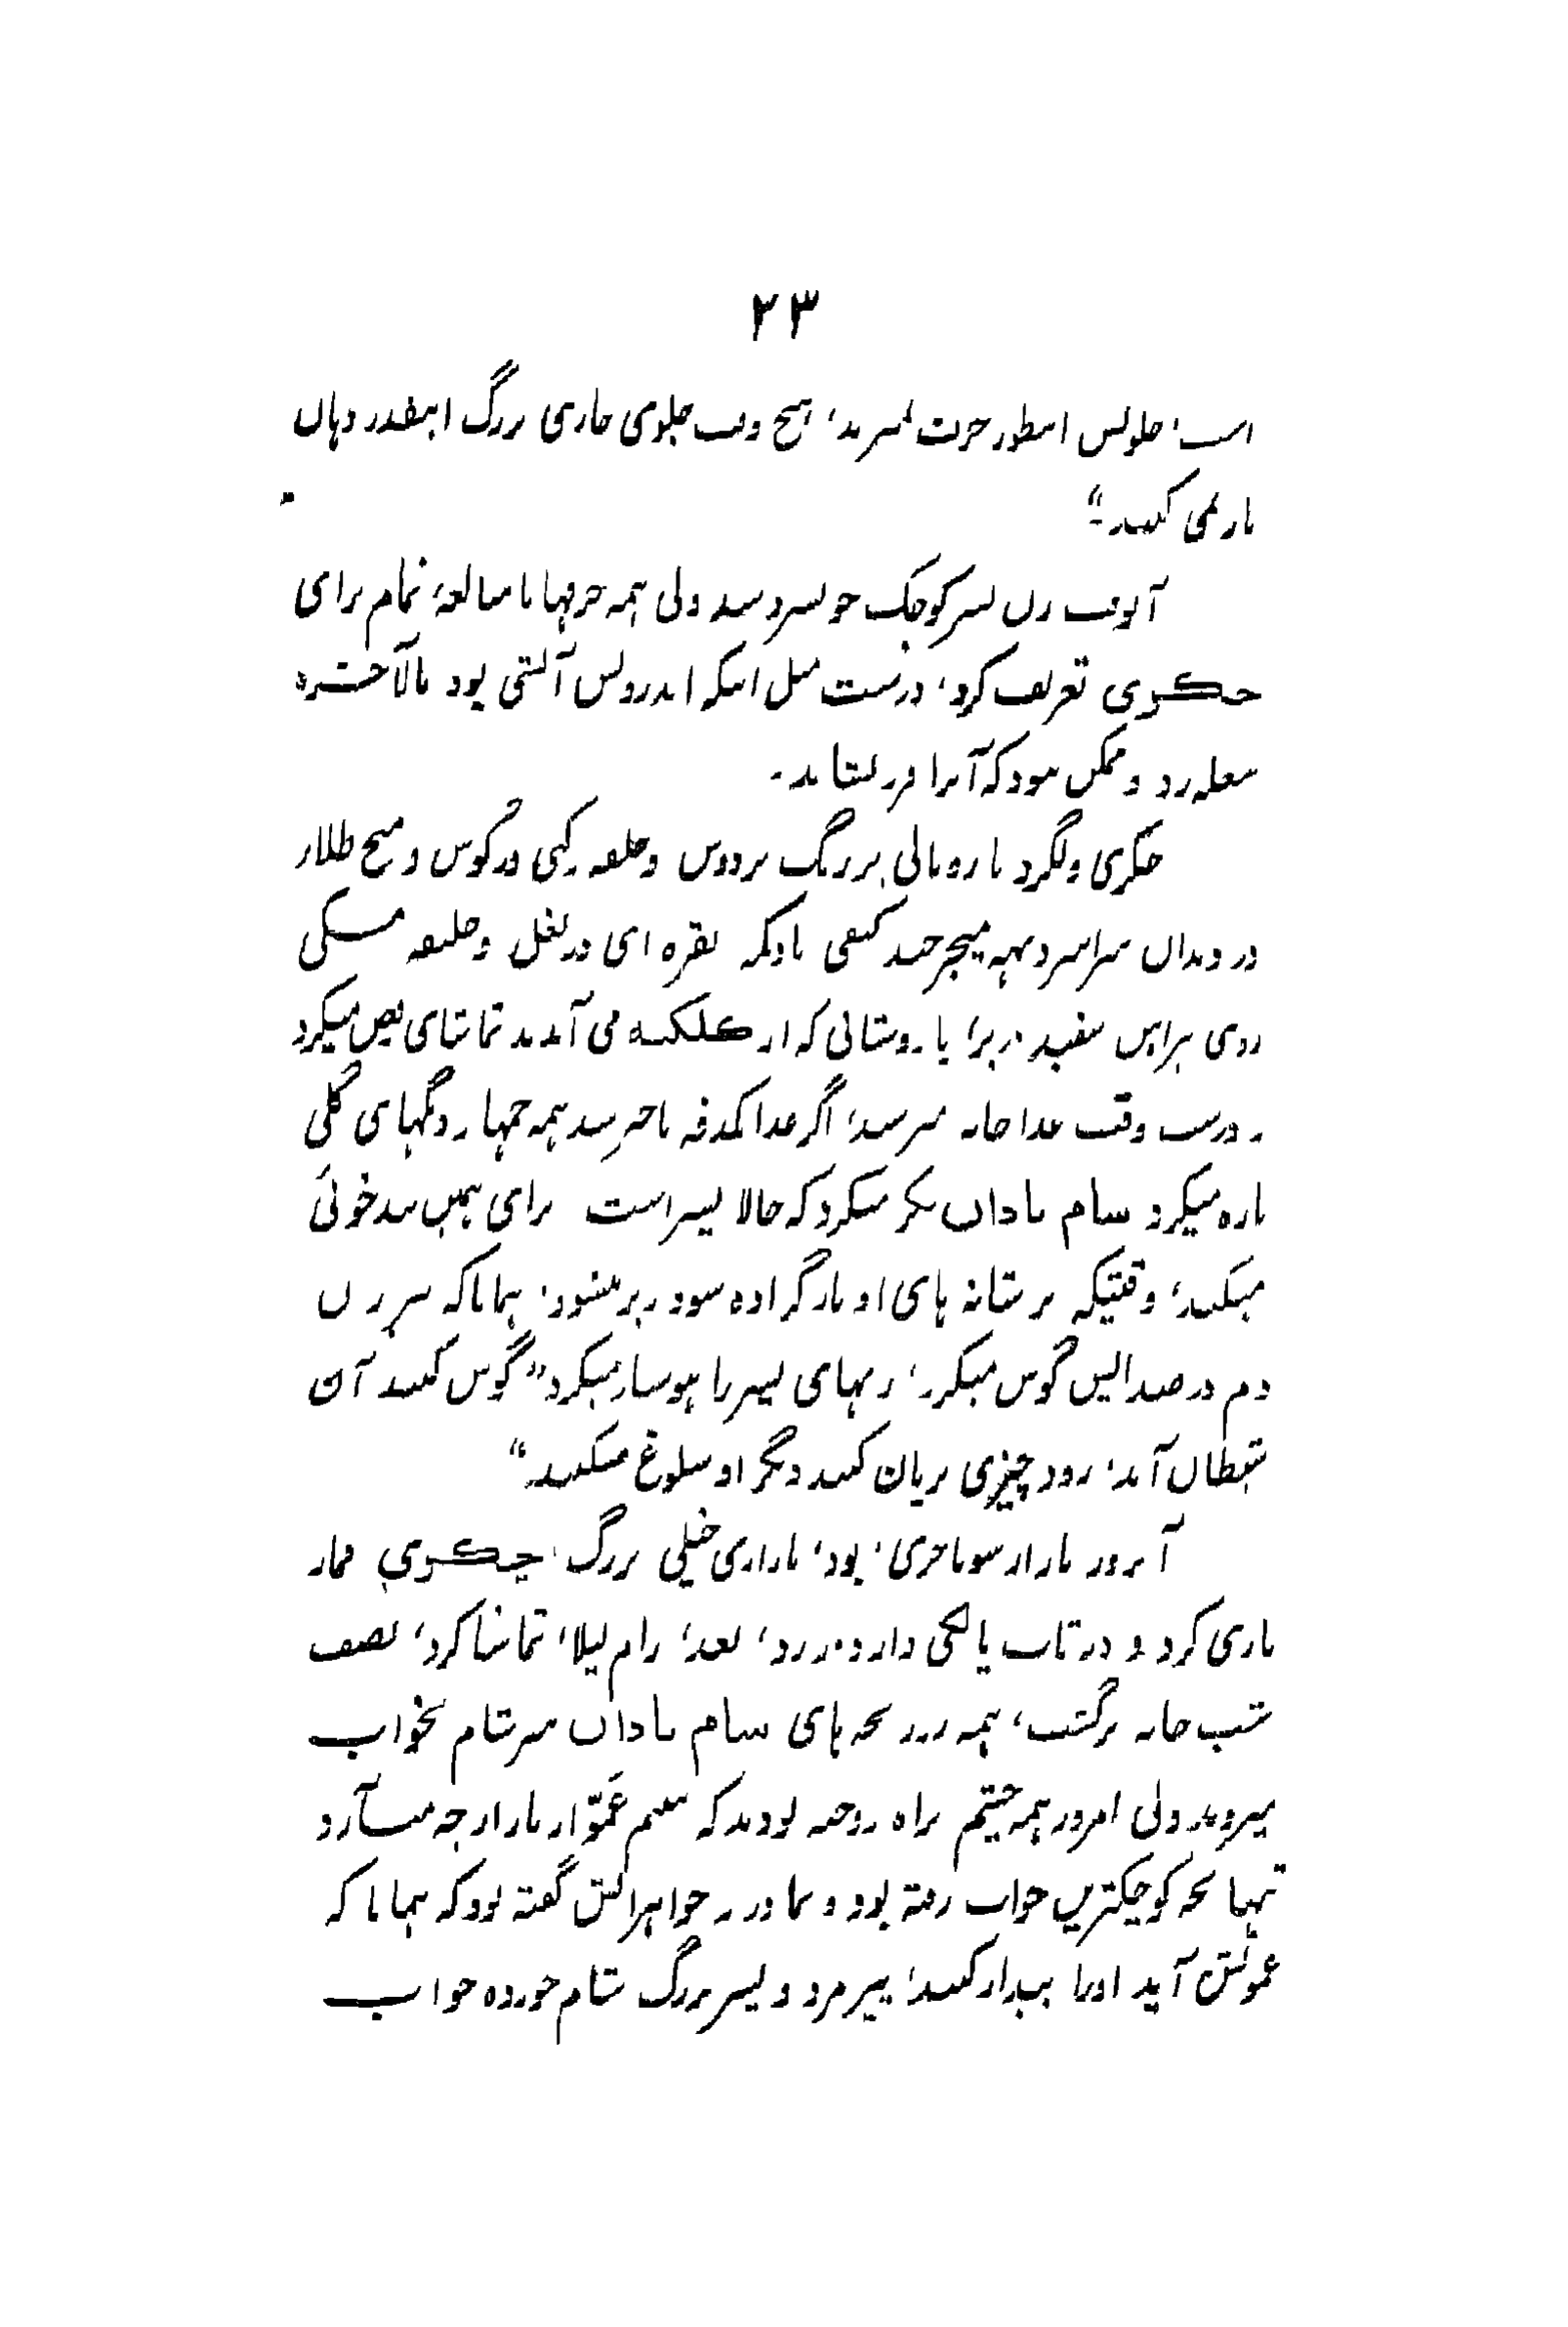 ۲۳
است، جلویش اینطور حرف نمیزند، هیچ وقت جلوی جاری بزرگ اینقدر دهان
باز نمی کنید"
آنوقت زن پسر کوچک خونسرد شد ولی همه حرفها با مبالغه تمام برای
چکوری تعریف کرد، درست مثل اینکه اندرونش آتشی بود بالآخره
شعله زد و ممکن نبود که آنرا فرو نشاند.
چکوری ولگرد با رومالی پر رنگ بر دوش و حلقه رکی در گوش و میخ طلا
در دندان سراسر دهه میچرخید کیفی با دکمه نقره ای در بغل و جلیقه مشکی
روی پیراهن سفید در بر، با دوستانی که از کلکته می آمدند تماشای رقص میکرد
درست وقت غذا خانه میرسد، اگر غذا کمدفه تاخیر شد همه چهار دیگهای گلی
پاره میکرد شام نادان فکر میکرد که حالا پسر است برای همین بدخوئی
میکند، وقتیکه بر شانه های او بار گزارده شود زیر میشود. همانا که سر زن
دم در صدایش گوش میکرد، زنهای پسر را هوشیار میکرد "گوش کنید آن
شیطان آمد، زود چیزی بریان کنید دیگر او شلوغ میکند"
آنروز بازار سوناخری، بود، بازاری خیلی بزرگ، چکوری قمار
بازی کرد و در تاب پالکی دار دور زد، بعد، رام لیلا، تماشا کرد، نصف
شب خانه برگشت، همه روز بچه های شام نادان سر شام بخواب
میروند ولی امروز همه چشم براه دوخته بودند که ببینم عمّو از بازار چه میآرد
تنها بچه کوچکترین خواب رفته بود و بمادر و خواهرانش گفته بود که همانا که
عمویش آید اورا بیدار کنید، پیر مرد و پسر بزرگ شام خورده خواب